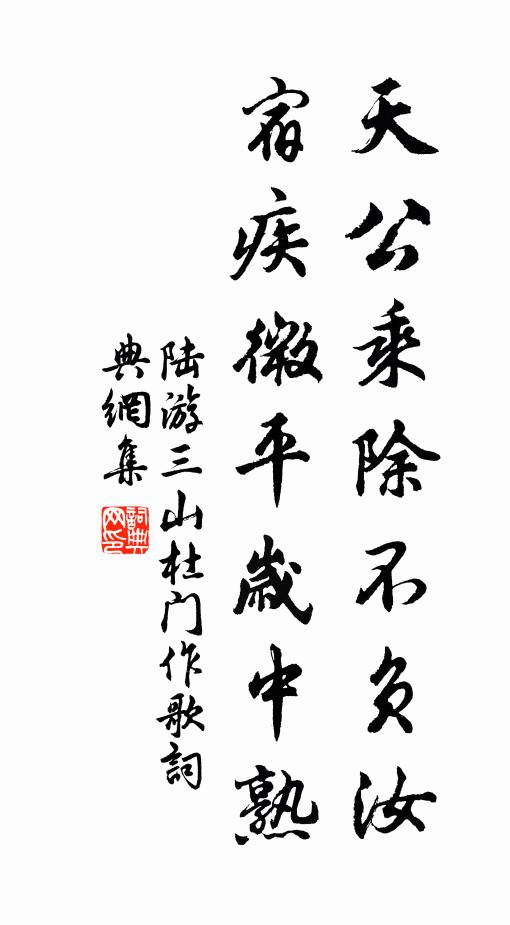 天公乘除不負汝
宿疾微平歲中熟
陆游三山杜门作歌詞
典網集
詞典網印